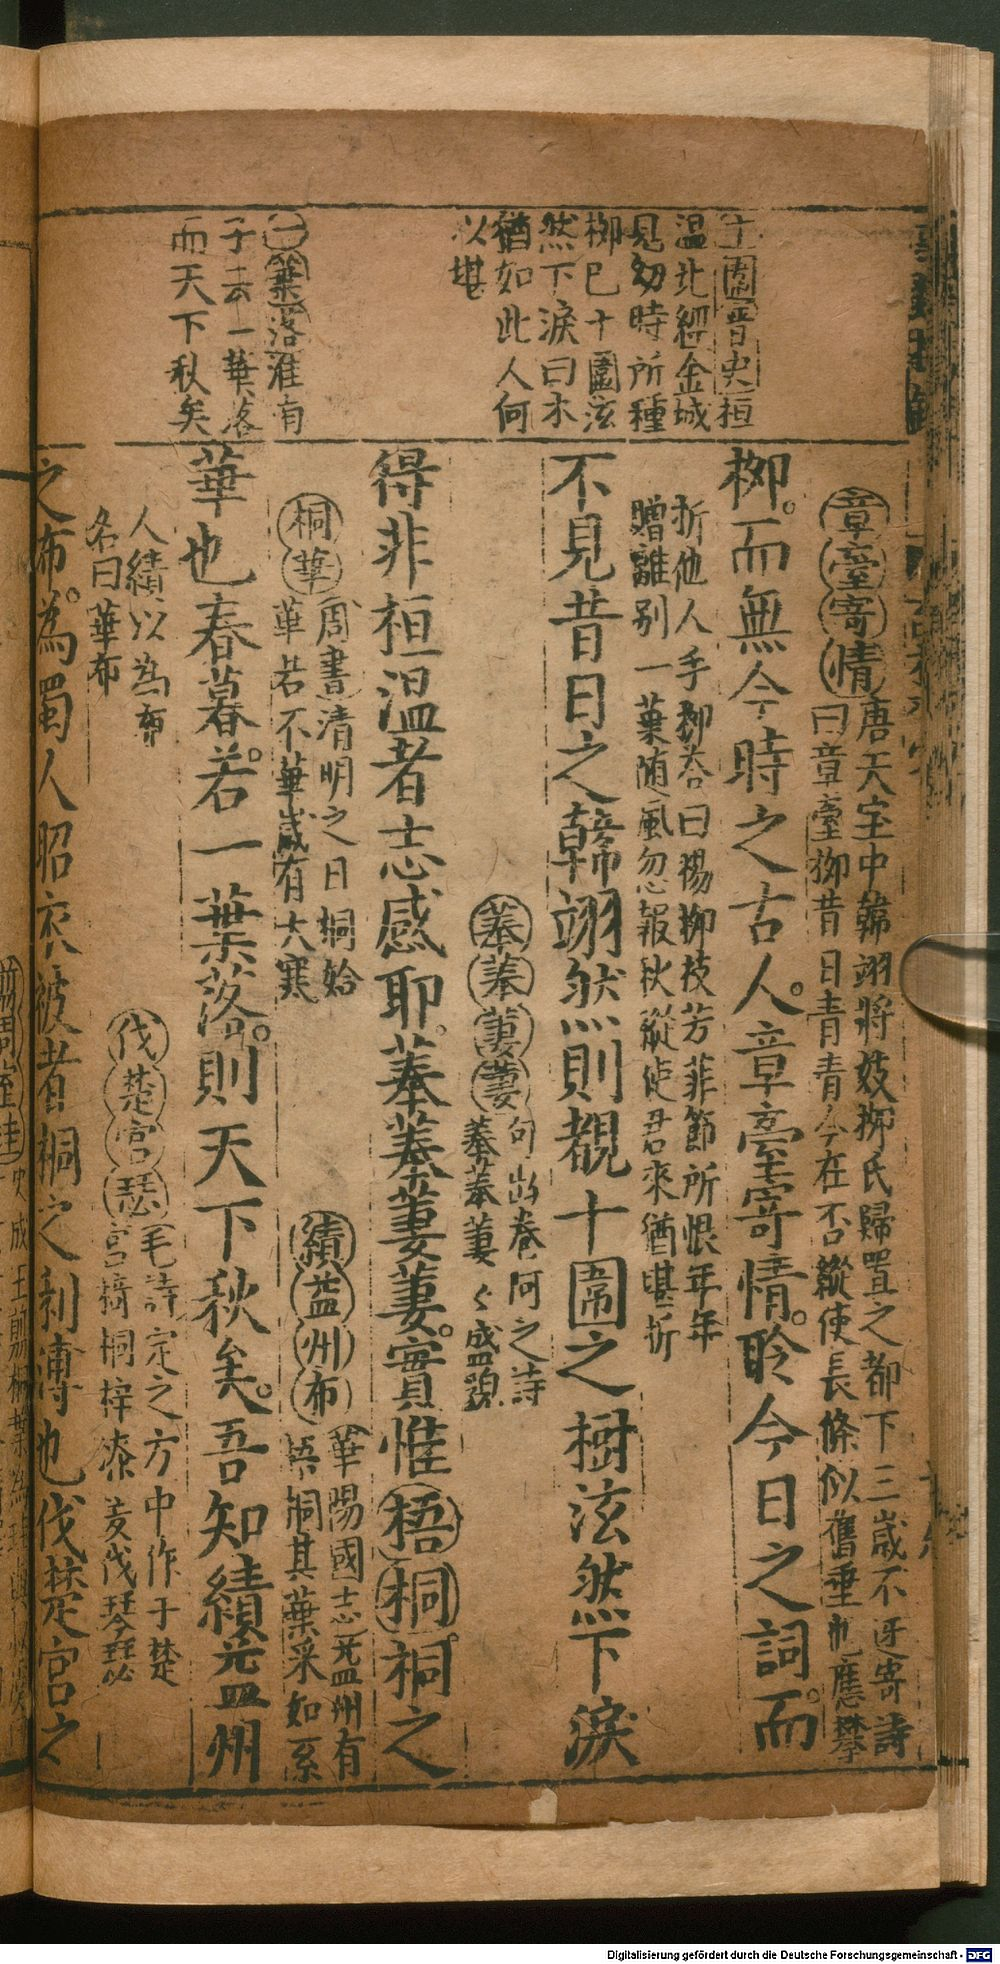 十圍晋史桓
温北經金城
見幼時所種
栁已十圍泫
然下淚曰木
猶如此人何
以堪
一葉落淮南
子云一葉落
而天下秋矣
章臺寄情
唐天宝中韓翊將妓栁氏歸置之都下三歲不迓寄詩
曰章臺栁昔日青青今在否縱使長條似舊垂也應攀
栁。而無今時之古人。章臺寄情。聆今日之詞。而
折他人手栁荅曰楊栁枝芳菲節所恨年年
贈離别一葉随風忽報秋縱使君來猶堪折
不見昔日之韓翊然則覩十圍之樹泫然下淚
菶菶萋萋
句出卷阿之詩
菶菶萋々盛貌
得非桓温者志感耶。菶菶萋萋。實惟梧桐。桐之
桐華
周書清明之日桐始
華若不華歲有大寒
績益州布
華陽國志益州有
梧桐其葉采如糸
華也春暮。若一葉落。則天下秋矣。吾知績益州
人績以為布
名曰華布
伐楚宫瑟
毛詩定之方中作于楚
宫椅桐梓漆爰伐琴瑟
之布。為蜀人昭衣被者桐之利溥也伐楚宫之
Digitalisierung gefördert durch die Deutsche Forschungsgemeinschaft - DFG